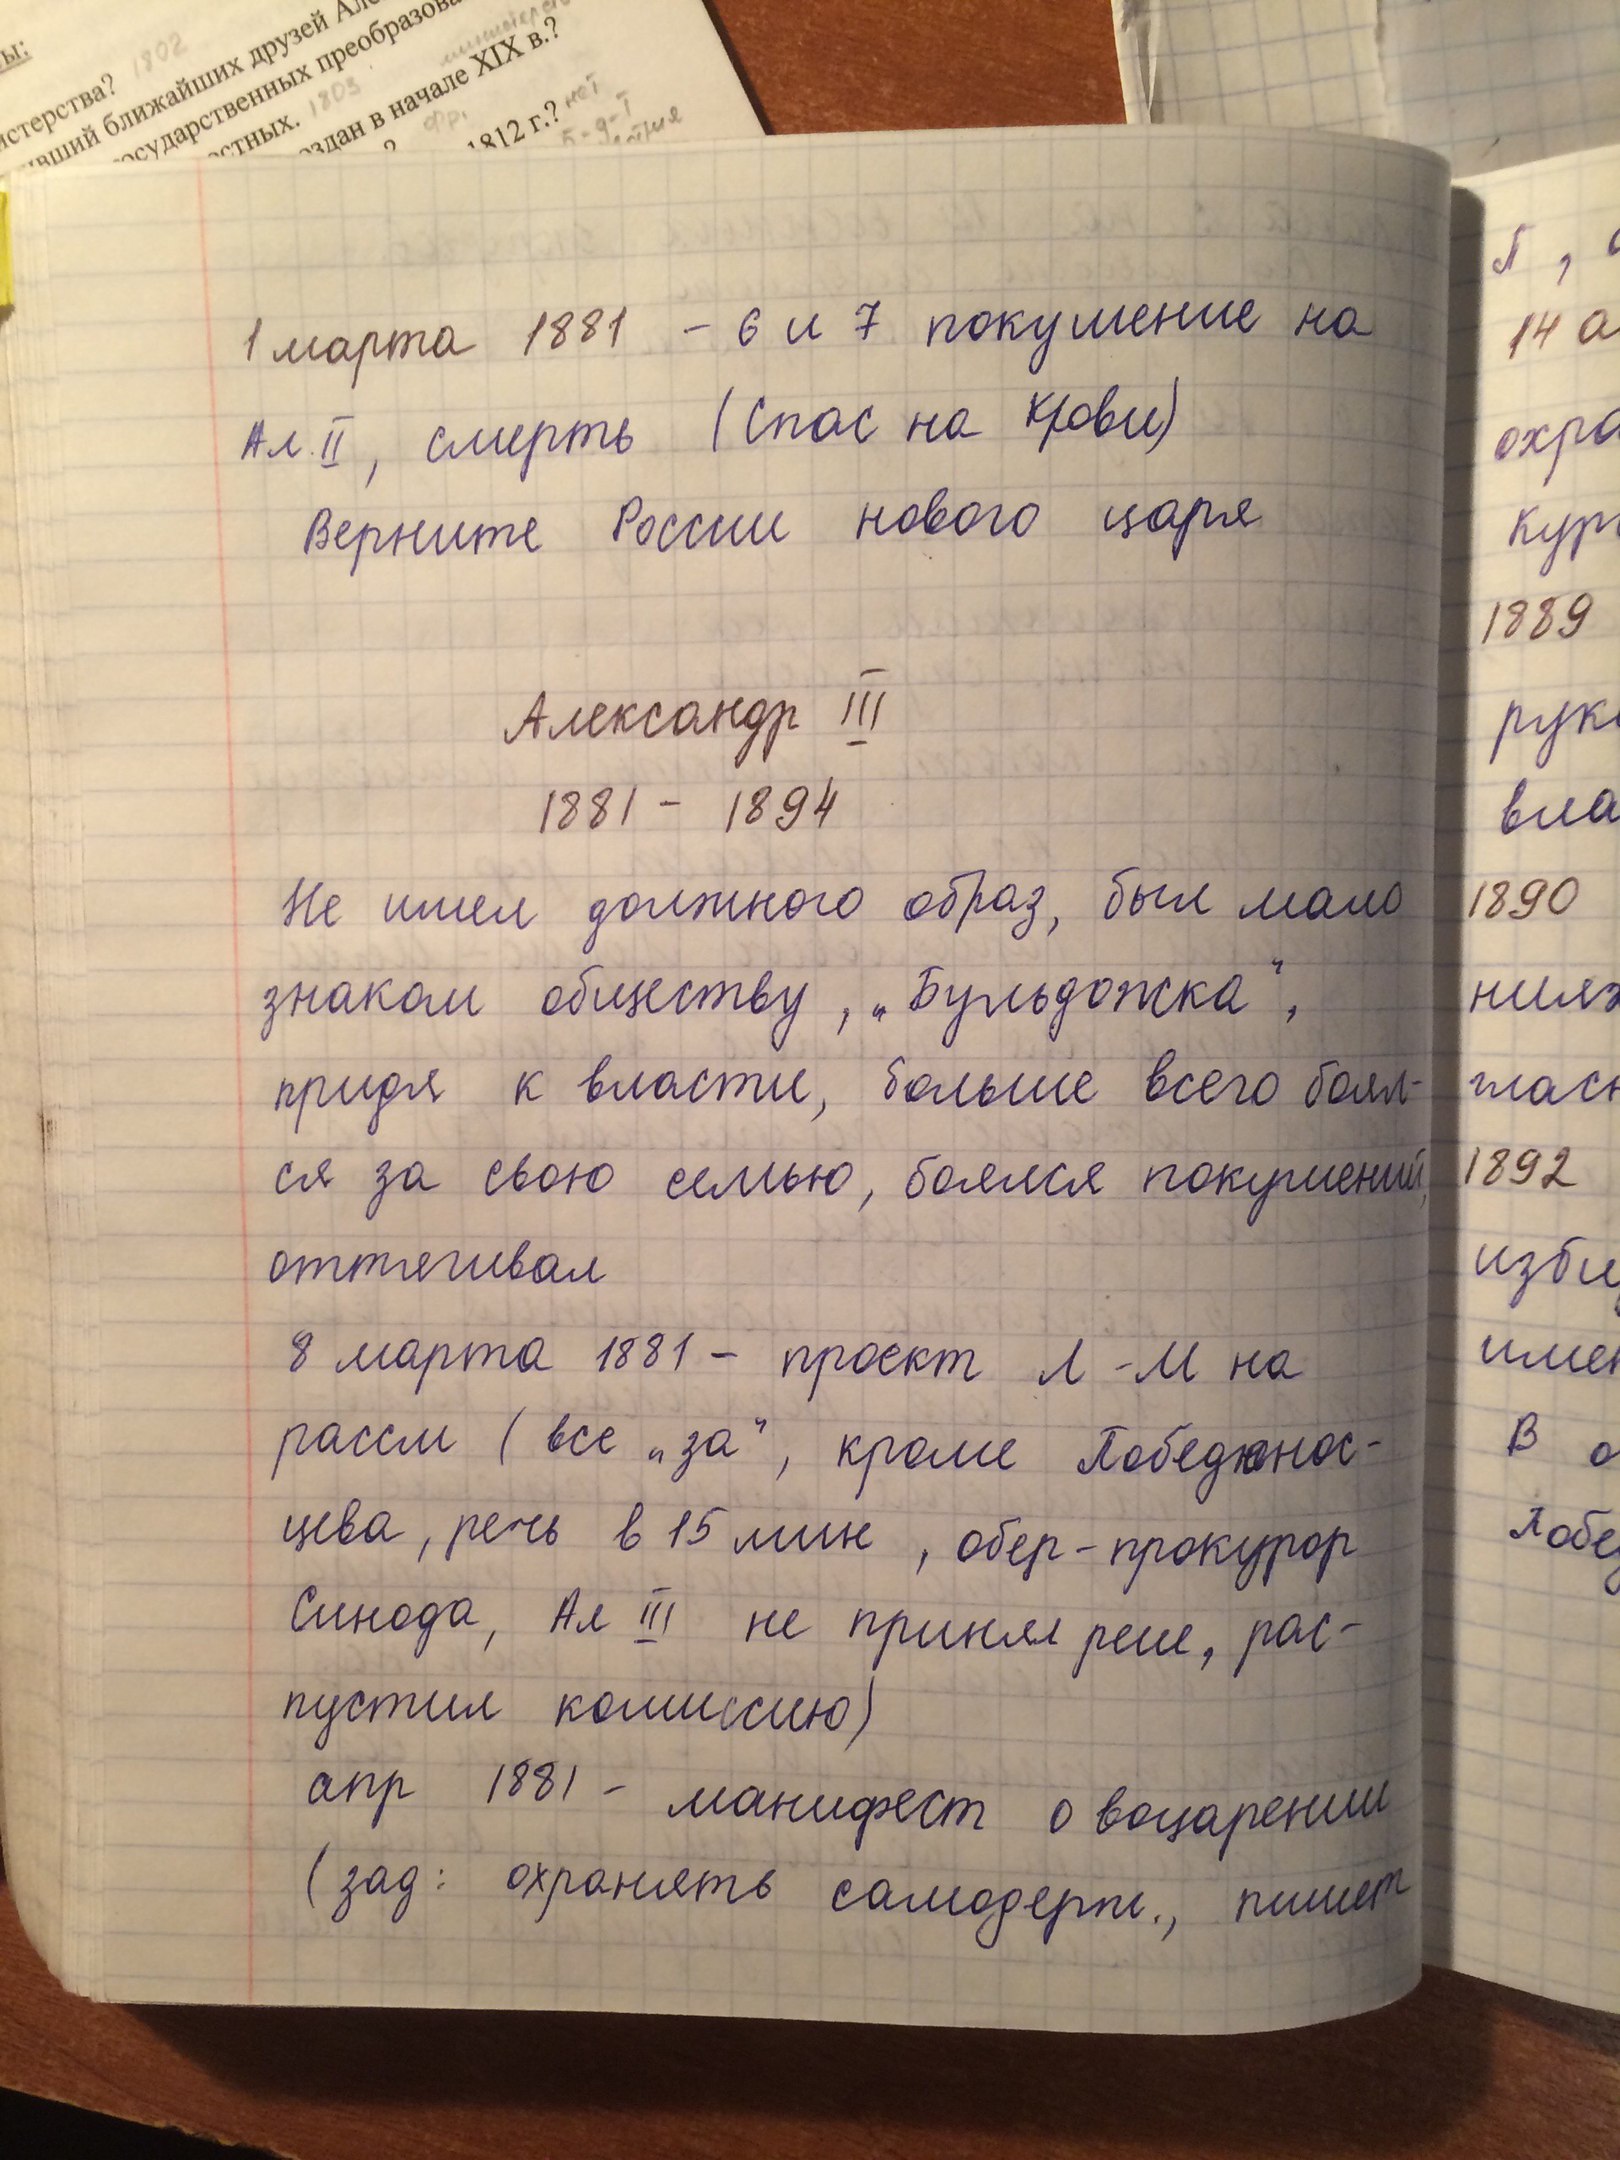 ты:
истерства? 1802
ивший ближайших друзей Але
государственных преобразова
естных. 1803
оздан в начале XIX в.?
? фр.
1812 г.? нет
5-9-1
1 марта 1881 – 6 и 7 покушение на
Ал. II, смерть (Спас на Крови)
Верните России нового царя
Александр III
1881 – 1894
Не имел должного образ, был мало
знаком обществу, „Бульдожка“,
придя к власти, больше всего боял-
ся за свою семью, боялся покушений,
оттягивал
8 марта 1881 – проект Л-М на
рассм (все „за“, кроме Победонос-
цева, речь в 15 мин, обер-прокурор
Синода, Ал III не принял реше, рас-
пустил комиссию)
апр 1881 – манифест о воцарении
(зад: охранять самодерж., пишет
л, с
14 а
охра
кур
1889
рук
вла
1890
ния
глас
1892
изби
имен
В о
Побед